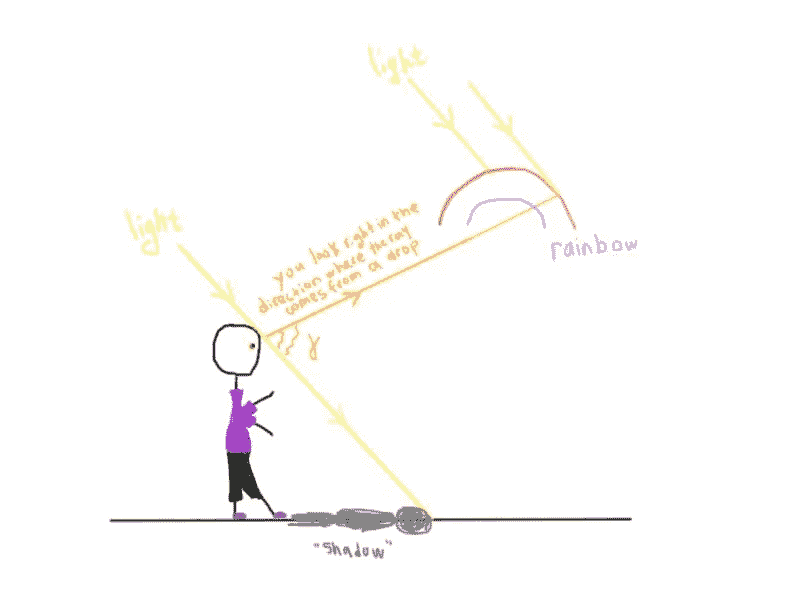 light
light
you look right in the
direction where the ray
comes from a drop
rainbow
γ
"shadow"